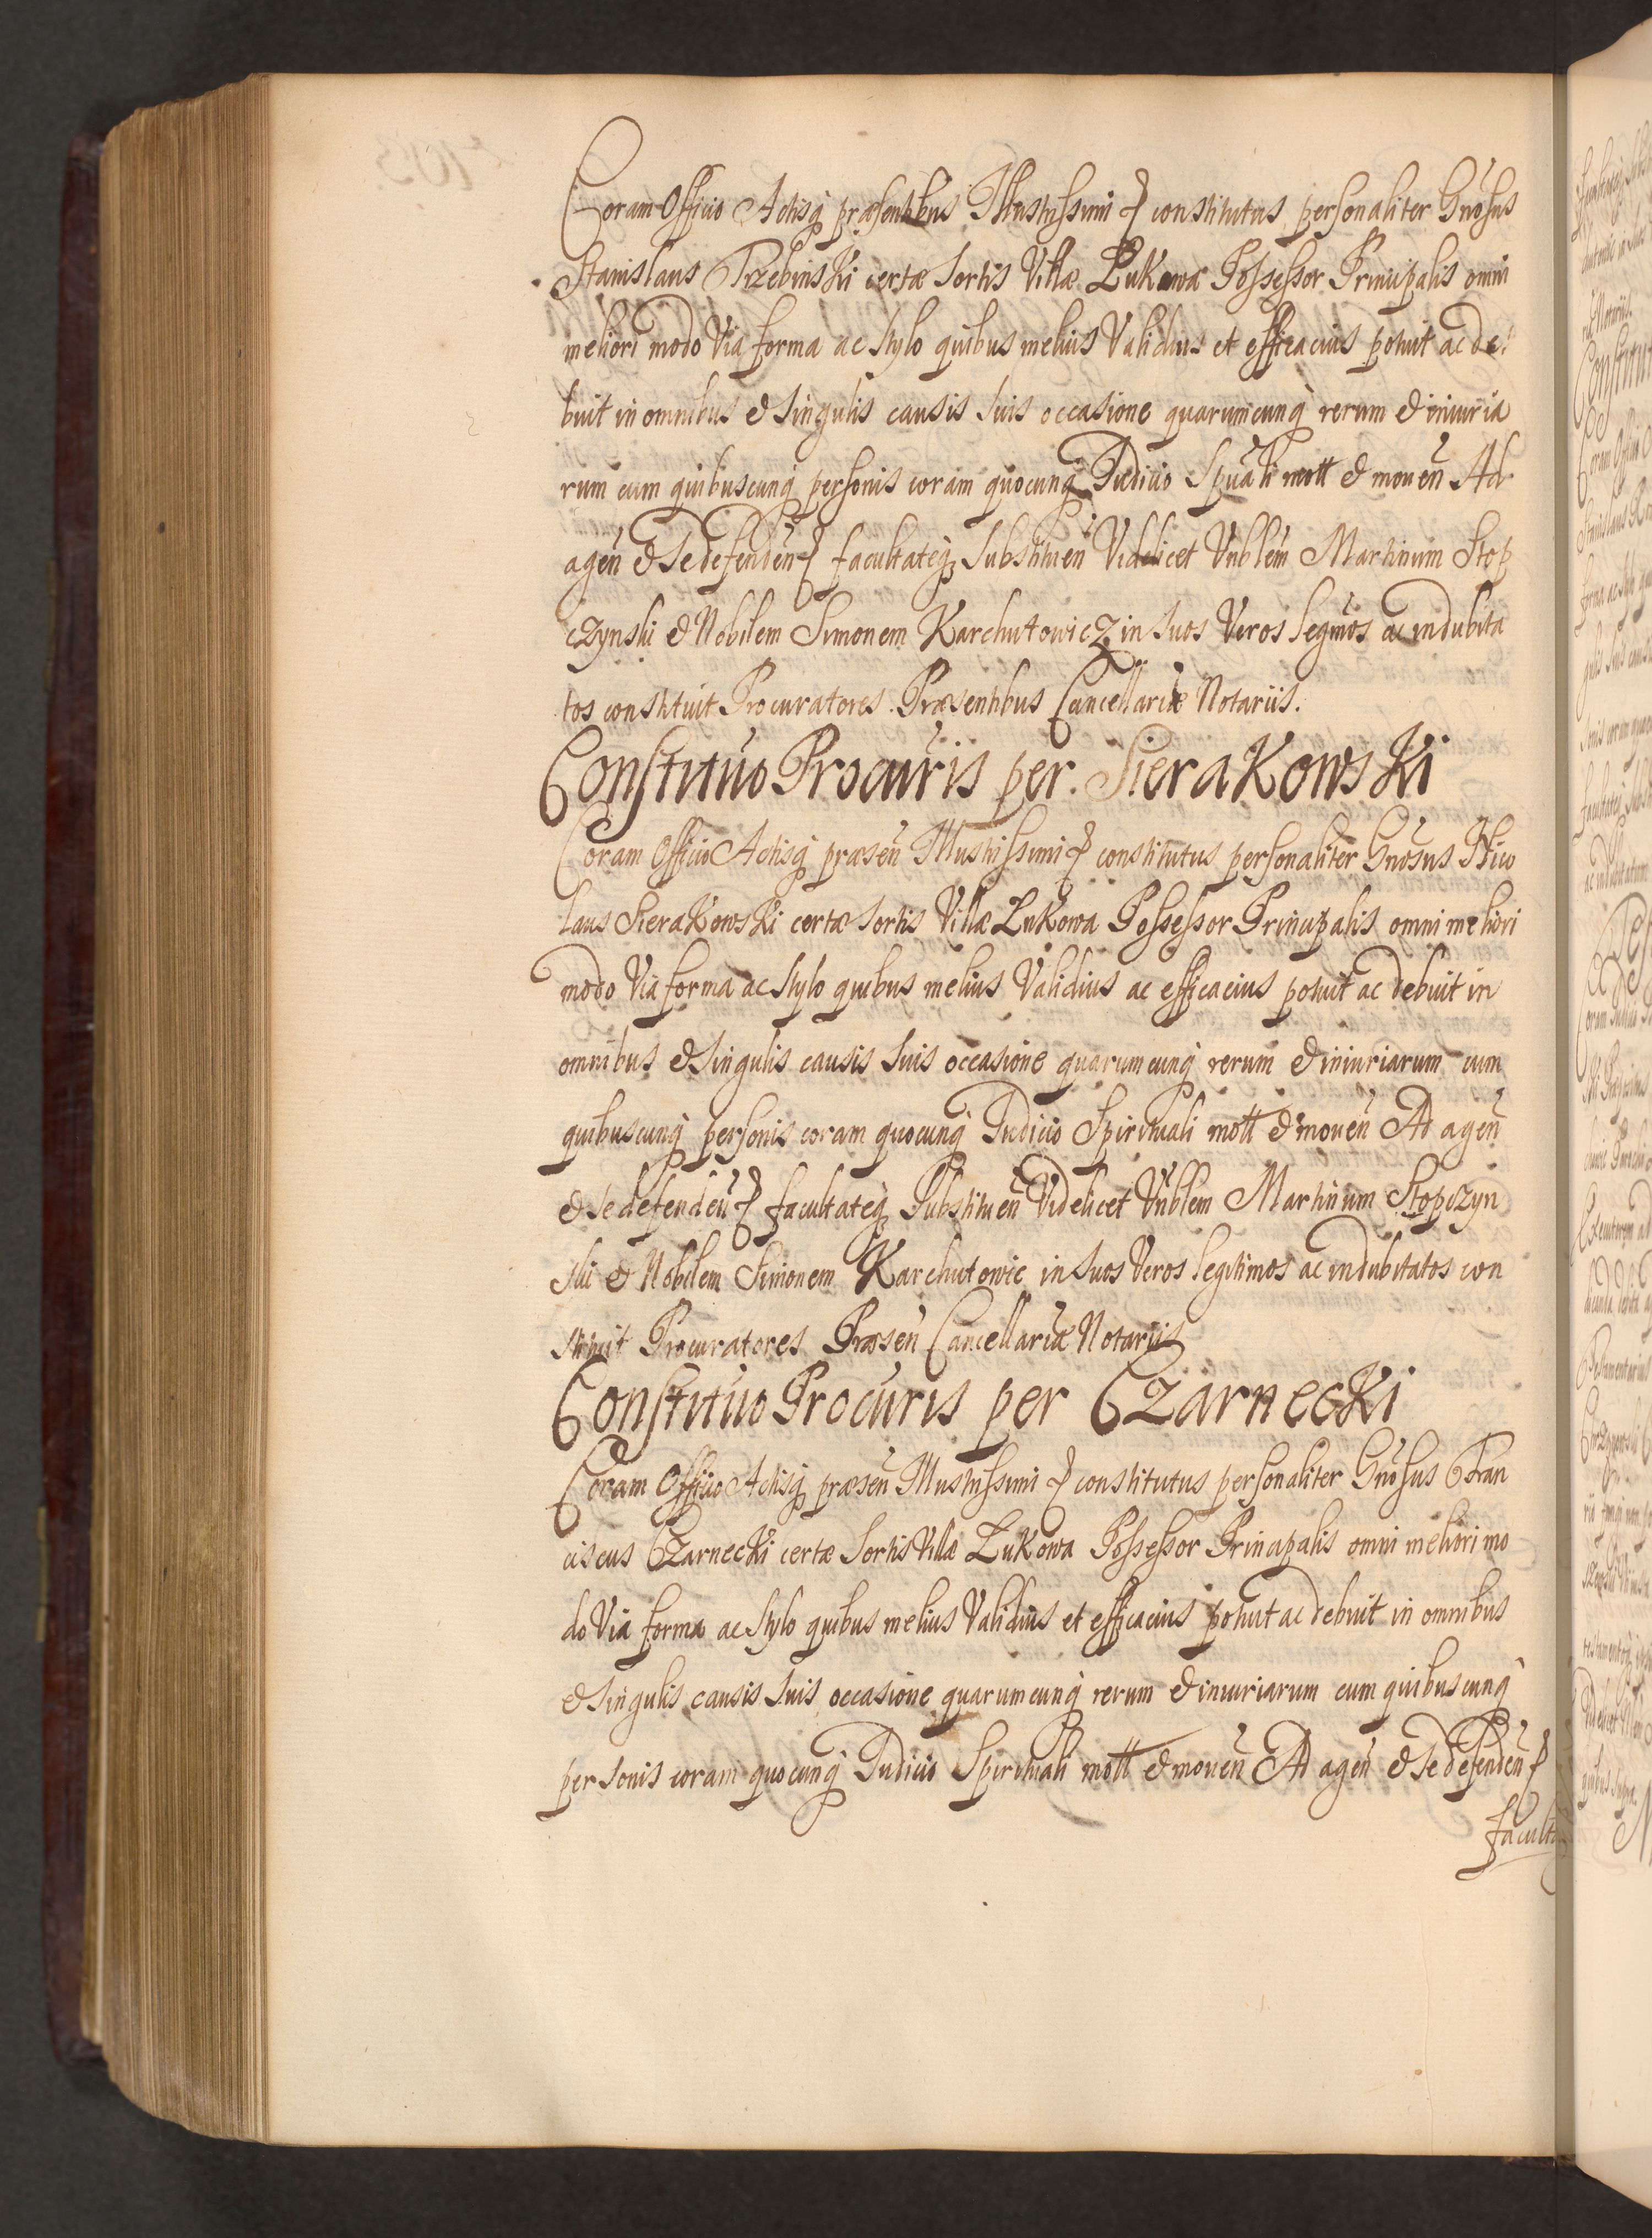 Coram Officio Actisq præsentibus Illustrissimi & constitutus personaliter Gnosus
Stanislaus Trzebinski certæ sortis Villæ Lukowa Possessor Principalis omni
meliori modo Via forma ac stylo quibus melius Validius et efficacius potuit ac de
buit in omnibus & singulis causis suis occasione quarumcunq rerum & iniuria
rum cum quibuscunq personis coram quocunq Iudicio Spuali mott & mouen Ad
agen & se defenden & facultateq substituen Videlicet Vnblem Martinum Stop
czynski & Nobilem Simonem Karchutowicz in suos Veros legmos ac indubita
tos constituit Procuratores. Præsentibus Cancellariæ Notariis.
Constituo Procuris per. SieraKowsKi
Coram Officio Actisq præsen Illustrissimi & constitutus personaliter Gnosus
laus SieraKowsKi certæ sortis Villæ LuKowa Possessor Principalis omni meliori
modo Via forma ac stylo quibus melius Validius ac efficacius potuit ac debuit in
omnibus & singulis causis suis occasione quarumcunq rerum & iniuriarum cum
quibuscunq personis coram quocunq Iudicio Spirituali mott & mouen Ad agen
& se defenden & facultateq substituen Videlicet Vnblem Martinum Stopczyn
ski & Nobilem Simonem Karchutowic in suos Veros legitimos ac indubitatos con
stituit Procuratores Præsen Cancellariæ Notariis
Constituo Procuris per CzarnecKi
Coram Officio Actisq præsen Illustrissimi & constitutus personaliter Gnosus Fran
ciscus CzarnecKi certæ sortis Villæ LuKowa Possessor Principalis omni meliori mo
do Via forma ac stylo quibus melius Validius et efficacius potuit ac debuit in omnibus
& singulis causis suis occasione quarumcunq rerum & iniuriarum cum quibuscunq
personis coram quocunq Iudicio Spirituali mott & mouen Ad agen & se defenden &